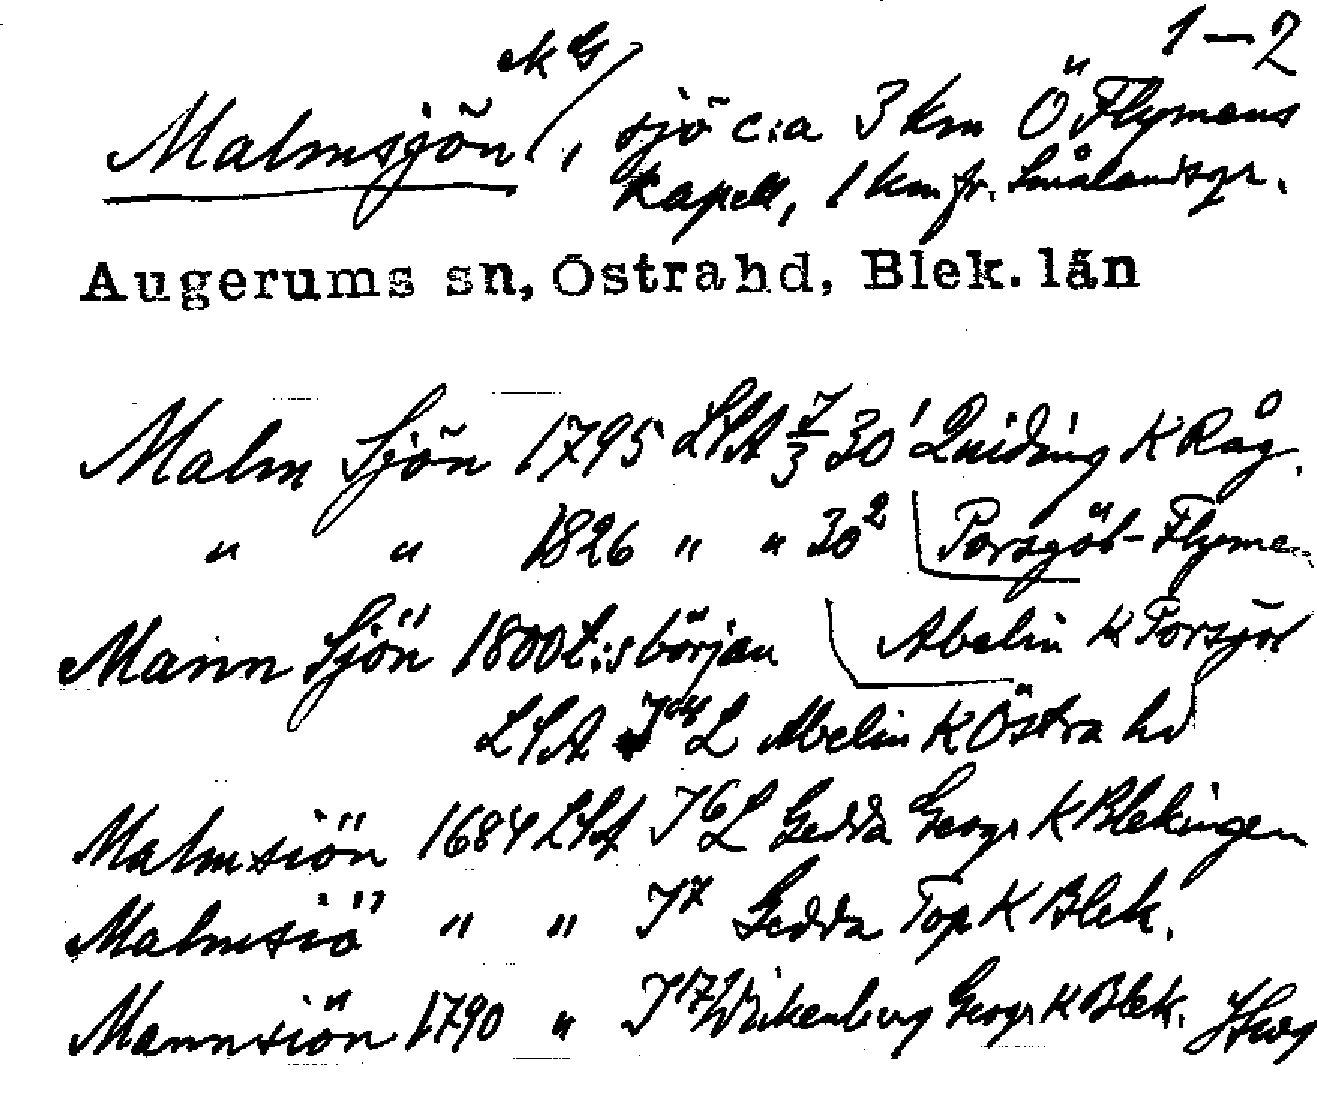 1–2
Malmsjön, sjö c:a 3 km Ö Flymens
kapell, 1 km fr. Smålandsgr.
Augerums sn, Östra hd, Blek. län
Malm Sjön 1795 LSA J/3 30¹ Quiding K Råg.
" " 1826 " " 30² Porsgöl-Flyme
Mann Sjön 1800t:s början Abelin K Porsgöl
LSA J L Abelin K Östra hd
Malmsiön 1684 LSA J⁶ L Gedda Geogr K Blekingen
Malmsiö " " J⁷ Gedda Top K Blek.
Mannsiön 1790 " J¹⁷ Wikenberg Geogr K Blek.